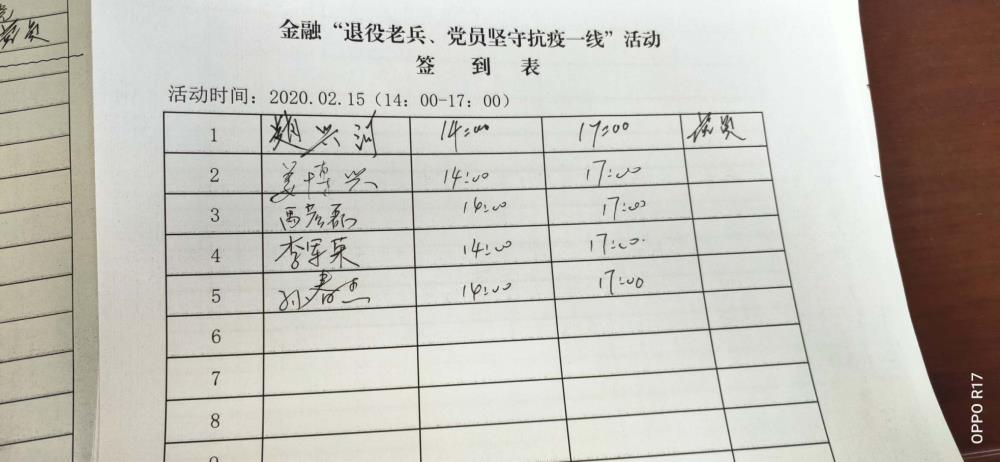 党员
金融“退役老兵、党员坚守抗疫一线”活动
签 到 表
活动时间：2020.02.15（14：00-17：00）
1 兴 14:00 17:00 党员
2 姜博兴 14:00 17:00
3 冯彦磊 14:00 17:00
4 李军英 14:00 17:00.
5 孙春杰 14:00 17:00
6
7
8
9
OPPO R17